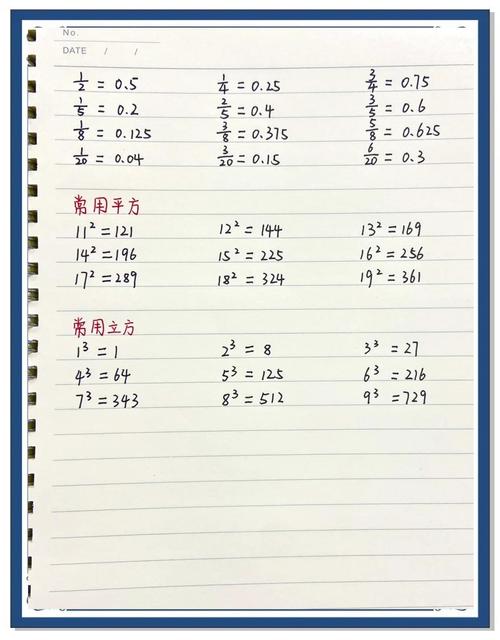 No.
DATE / /
1/2 = 0.5 1/4 = 0.25 3/4 = 0.75
1/5 = 0.2 2/5 = 0.4 3/5 = 0.6
1/8 = 0.125 3/8 = 0.375 5/8 = 0.625
1/20 = 0.04 3/20 = 0.15 6/20 = 0.3
常用平方
11² = 121 12² = 144 13² = 169
14² = 196 15² = 225 16² = 256
17² = 289 18² = 324 19² = 361
常用立方
1³ = 1 2³ = 8 3³ = 27
4³ = 64 5³ = 125 6³ = 216
7³ = 343 8³ = 512 9³ = 729